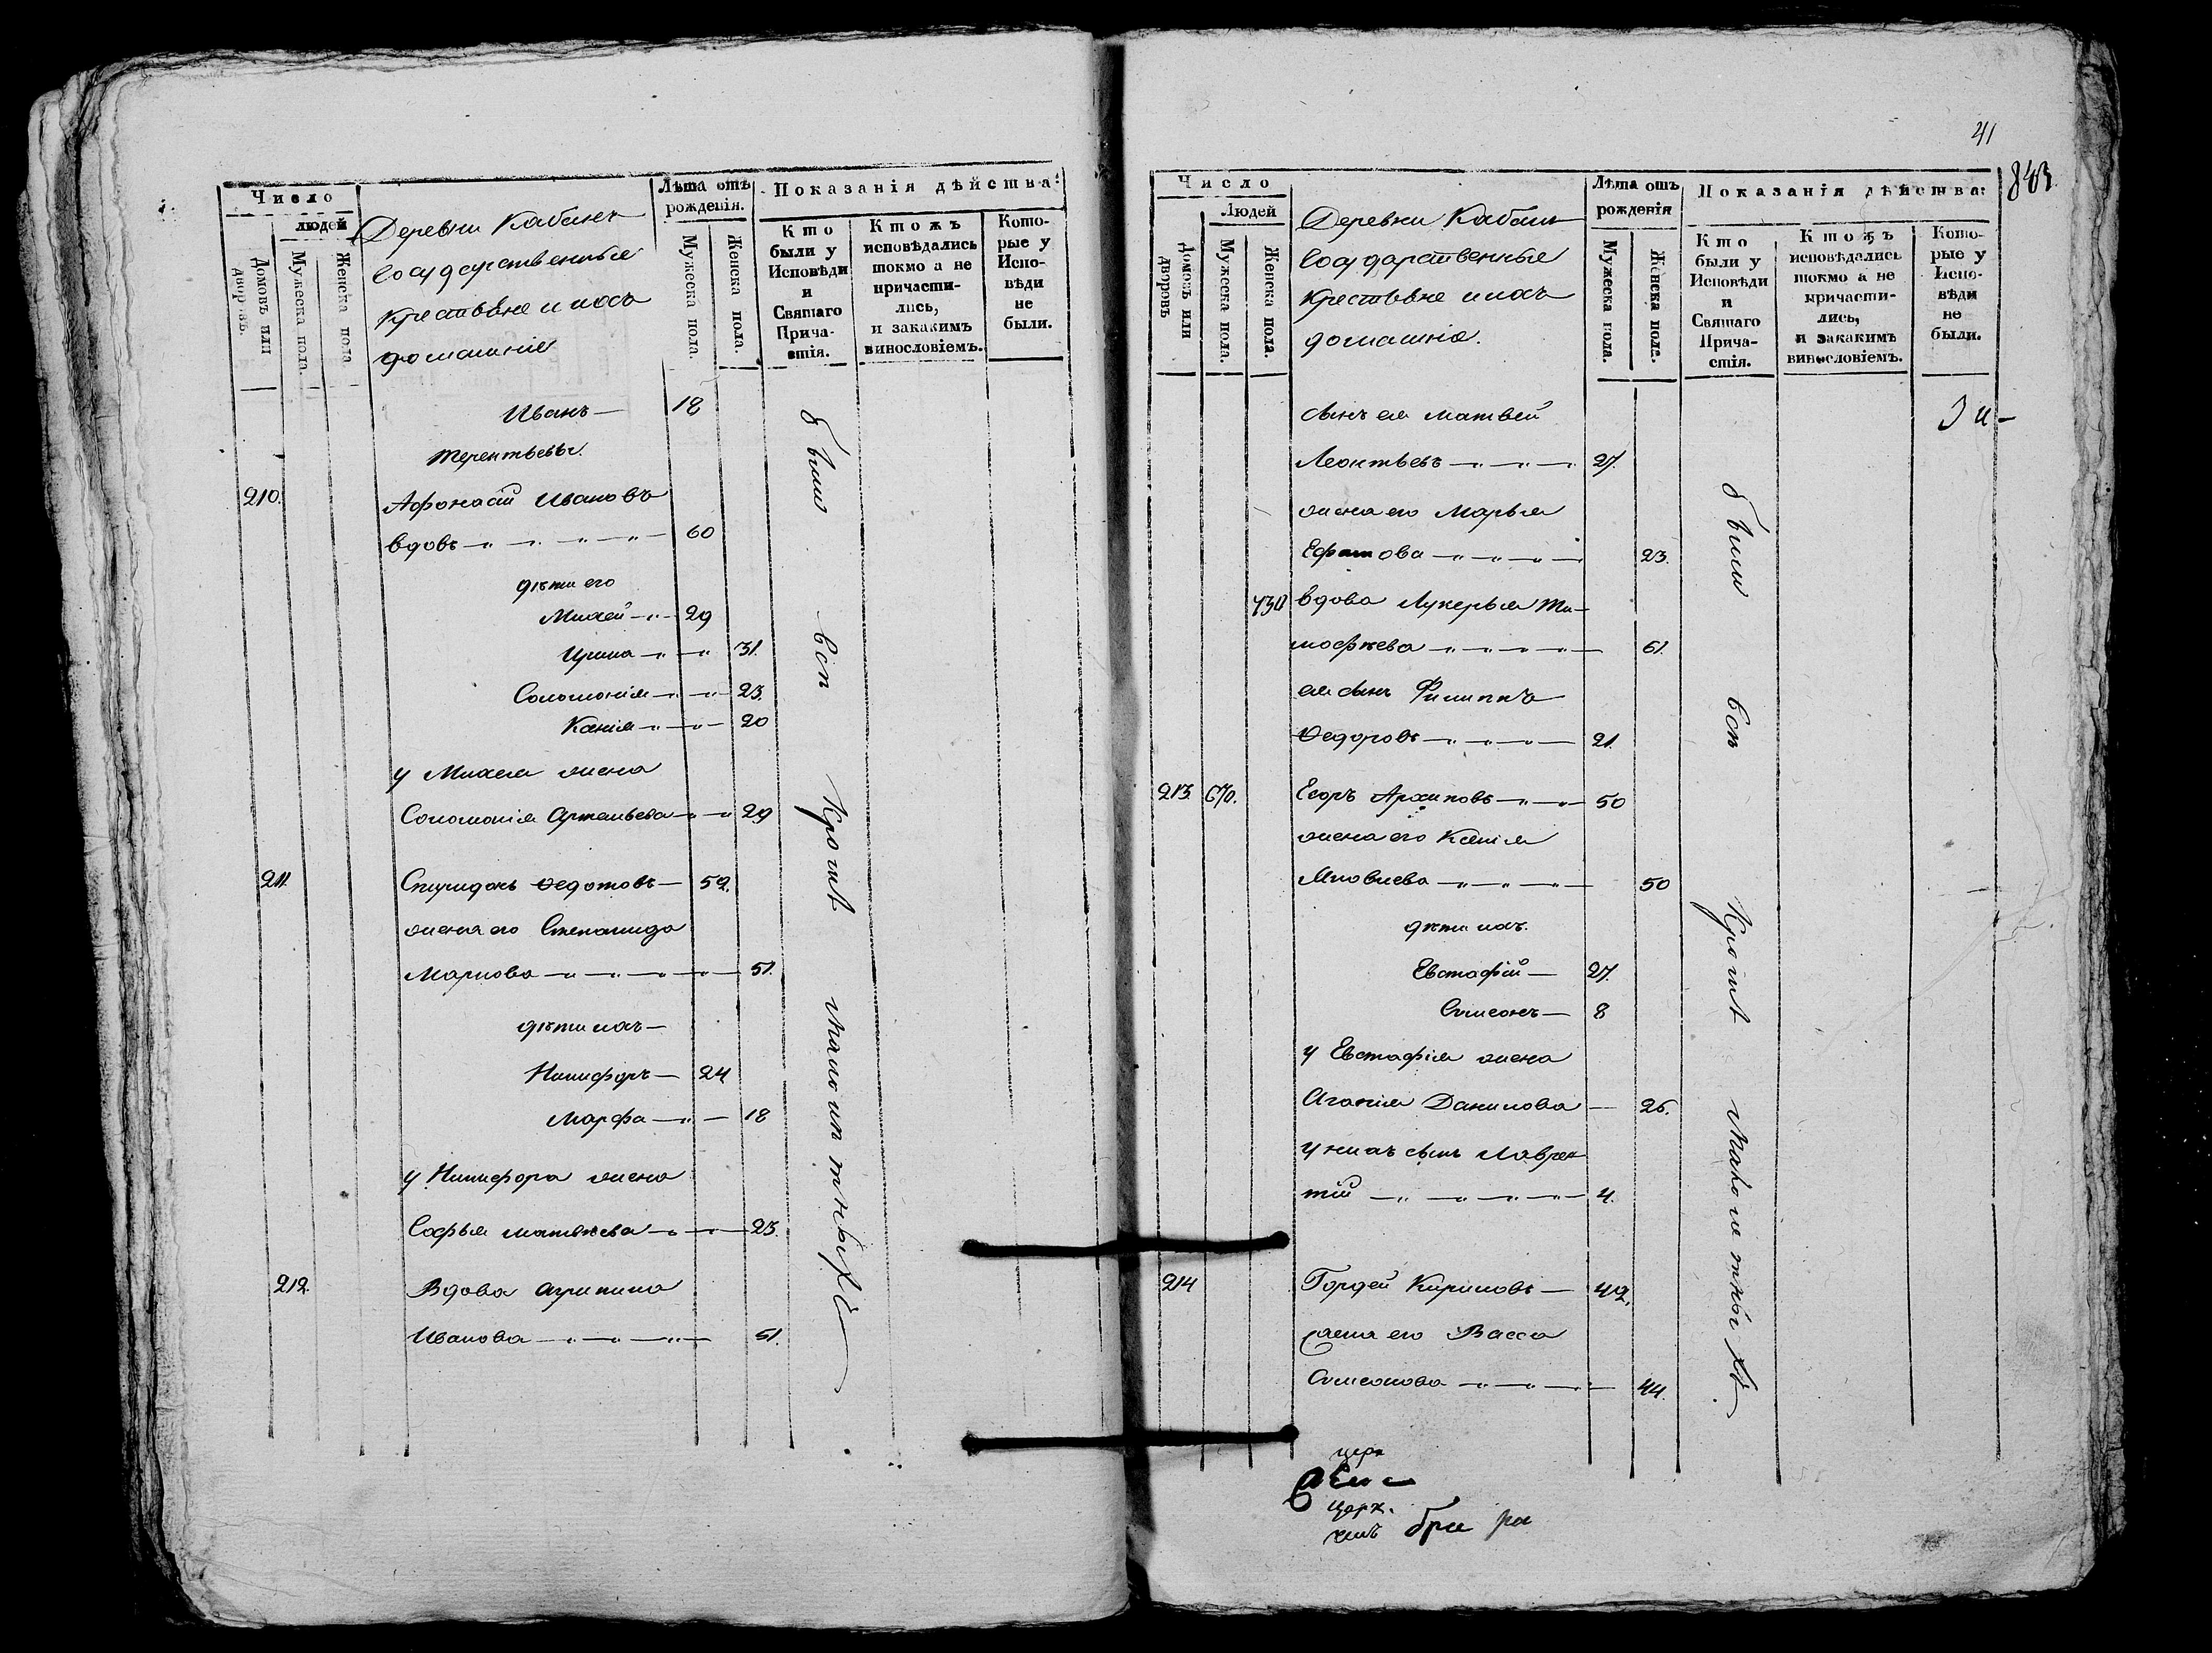 Число
людей
Домовъ или дворовъ.
Мужеска пола.
Женска пола
Деревни Кабанъ
Государственные
крестьяне и ихъ
домашніе
Лѣта отъ
рожденія.
Мужеска пола.
Женска пола.
Показанія дѣйства:
Кто
были у
Исповѣди
и
Святаго
Прича-
стія.
Ктожъ
исповѣдались
токмо а не
причасти-
лись,
и закакимъ
винословіемъ.
Кото-
рые у
Испо-
вѣди
не
были.
Иванъ — 18
Терентьевы.
210. Афонасій Ивановъ
вдовъ — 60
дѣти его
Михей — 29
Ирина — 31.
Соломонія — 23.
Ксенія — 20
у Михея жена
Соломонія Артемьева — 29
211. Спиридонъ Ѳедотовъ — 52.
жена его Степанида
Маркова — 51.
дѣти ихъ —
Никифоръ — 24
Марфа — 18
у Никифора жена
Софья Матвѣева — 23.
212. Вдова Агрипина
Иванова — 51.
были всѣ кромѣ малолѣтныхъ
41
843
Число
Людей
Домовъ или дворовъ
Мужеска пола.
Женска пола.
Деревни Кабанъ
Государственные
крестьяне и ихъ
домашніе.
Лѣта отъ
рожденія
Мужеска пола.
Женска пола.
Показанія дѣйства:
Кто
были у
Исповѣди
и
Святаго
Прича-
стія.
Ктожъ
исповѣдались
токмо а не
причасти-
лись,
и закакимъ
винословіемъ.
Кото-
рые у
Испо-
вѣди
не
были.
сынъ ея Матвей
Леонтьевъ — 27.
жена его Марья
Ефимова — 23.
730 вдова Лукерья Ти-
мофѣева — 61.
ея сынъ Филиппъ
Ѳедоровъ — 21.
213. 670. Егоръ Архиповъ — 50
жена его Ксенія
Яковлева — 50
дѣти ихъ.
Евстафій — 27.
Симеонъ — 8
у Евстафія жена
Агапія Данилова — 26.
у нихъ сынъ Лаврен
тій — 4.
214 Гордей Кириловъ — 42.
жена его Васса
Симеонова — 44.
были всѣ кромѣ малолѣтныхъ
церк